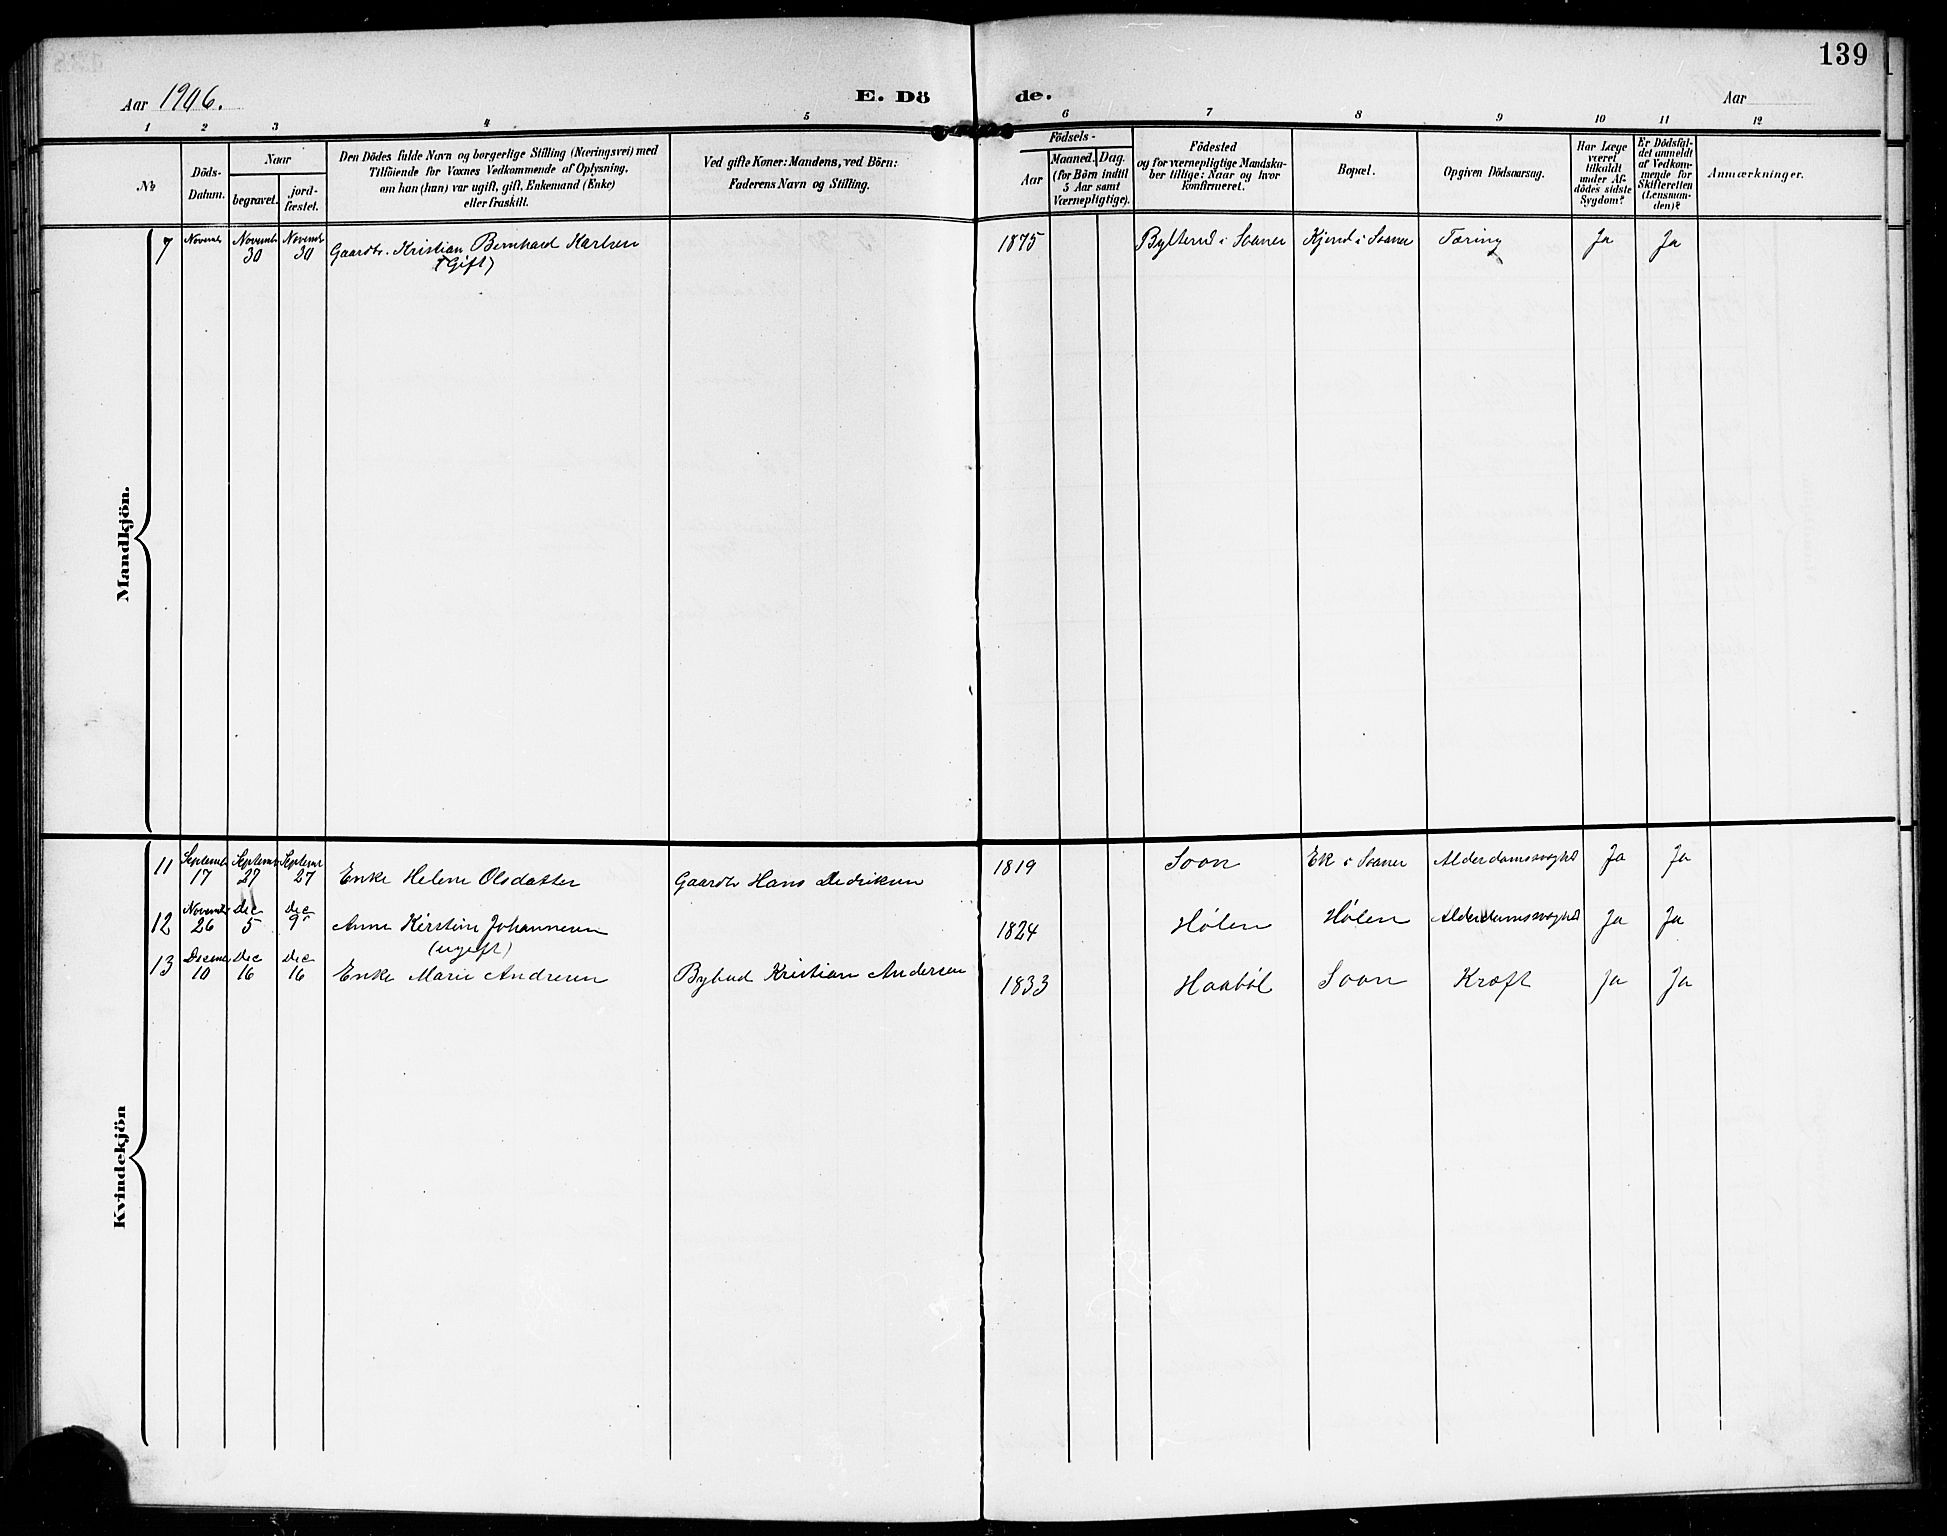 139
Aar 1906.
E. Dö de.
Aar
1 2 3 4 5 6 7 8 9 10 11 12
No
Döds-
Datum.
Naar
begravet.
jord-
fæstet.
Den Dödes fulde Navn og borgerlige Stilling (Næringsvei) med
Tilföiende for Voxnes Vedkommende af Oplysning,
om han (hun) var ugift, gift, Enkemand (Enke)
eller fraskilt.
Ved gifte Koner: Mandens, ved Börn:
Faderens Navn og Stilling.
Födsels-
Aar
Maaned. Dag.
(for Börn indtil
5 Aar samt
Værnepligtige).
Födested
og for værnepligtige Mandska-
ber tillige: Naar og hvor
konfirmeret.
Bopæl.
Opgiven Dödsaarsag.
Har Læge
været
tilkaldt
under Af-
dödes sidste
Sygdom?
Er Dödsfal-
det anmeldt
af Vedkom-
mende for
Skifteretten
(Lensman-
den)?
Anmærkninger.
Mandkjön.
7 Novemb Novemb 30 Novemb 30 Gaardbr. Kristian Bernhard Karlsen 1875 Bylterud i Soaner Kjerud i Soaner Tæring Ja Ja
(Gift)
Kvindekjön
11 Septemb 17 Septemb 27 Septemb 27 Enke Helene Olsdatter Gaardbr Hans Dedriksen 1819 Soon Ek i Soaner Alderdomssvaghd Ja Ja
12 Novemb 26 Dec 5 Dec 9 Anne Kirstine Johannesen 1824 Hølen Hølen Alderdomssvaghd Ja Ja
(ugift)
13 Decemb 10 Dec 16 Dec 16 Enke Marie Andresen Bybud Kristian Andersen 1833 Haabøl Soon Kræft Ja Ja